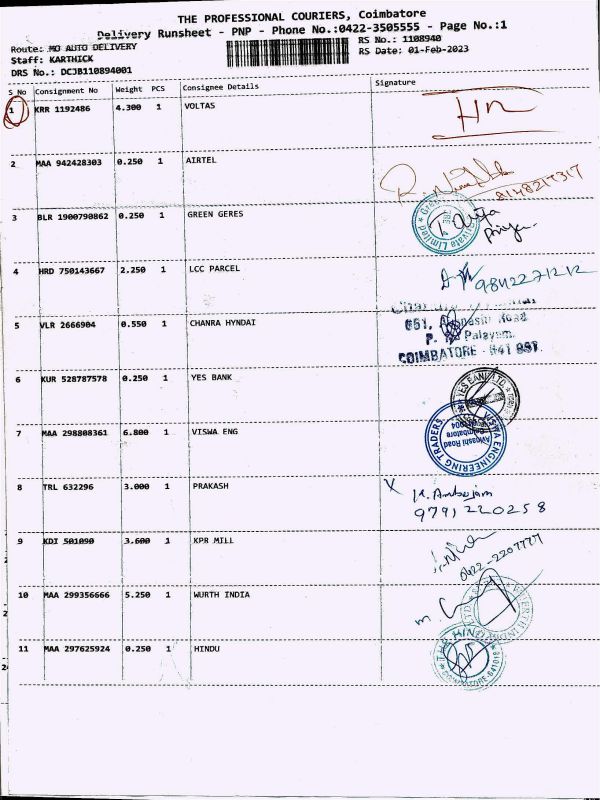 THE PROFESSIONAL COURIERS, Coimbatore
Delivery Runsheet - PNP - Phone No.:0422-3505555 - Page No.:1
Route: MO AUTO DELIVERY RS No.: 1108940
Staff: KARTHICK RS Date: 01-Feb-2023
DRS No.: DCJB110894001
S_No Consignment No Weight PCS Consignee Details Signature
1 KRR 1192486 4.300 1 VOLTAS
2 MAA 942428303 0.250 1 AIRTEL
8148217317
3 BLR 1900790862 0.250 1 GREEN GERES
4 HRD 750143667 2.250 1 LCC PARCEL
9842271212
5 VLR 2666904 0.550 1 CHANRA HYNDAI
Palayam.
COIMBATORE - 641
6 KUR 528787578 0.250 1 YES BANK
YES BANK LTD
7 MAA 298808361 6.800 1 VISWA ENG
VISWA ENGINEERING TRADERS
Avinashi Road
Coimbatore
8 TRL 632296 3.000 1 PRAKASH
X
9791220258
9 KDI 501090 3.600 1 KPR MILL
0422-2207777
10 MAA 299356666 5.250 1 WURTH INDIA
11 MAA 297625924 0.250 1 HINDU
THE HINDU